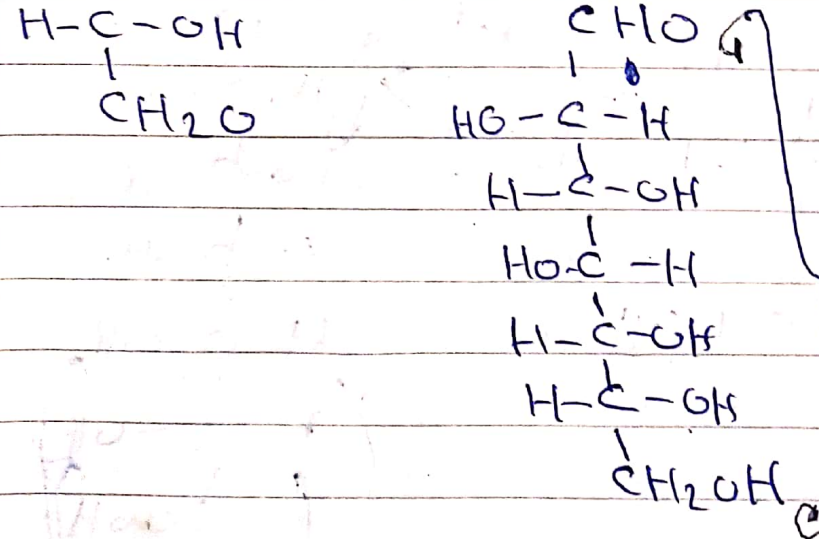 H-C-OH
CH2O
CHO
HO-C-H
H-C-OH
HO-C-H
H-C-OH
H-C-OH
CH2OH